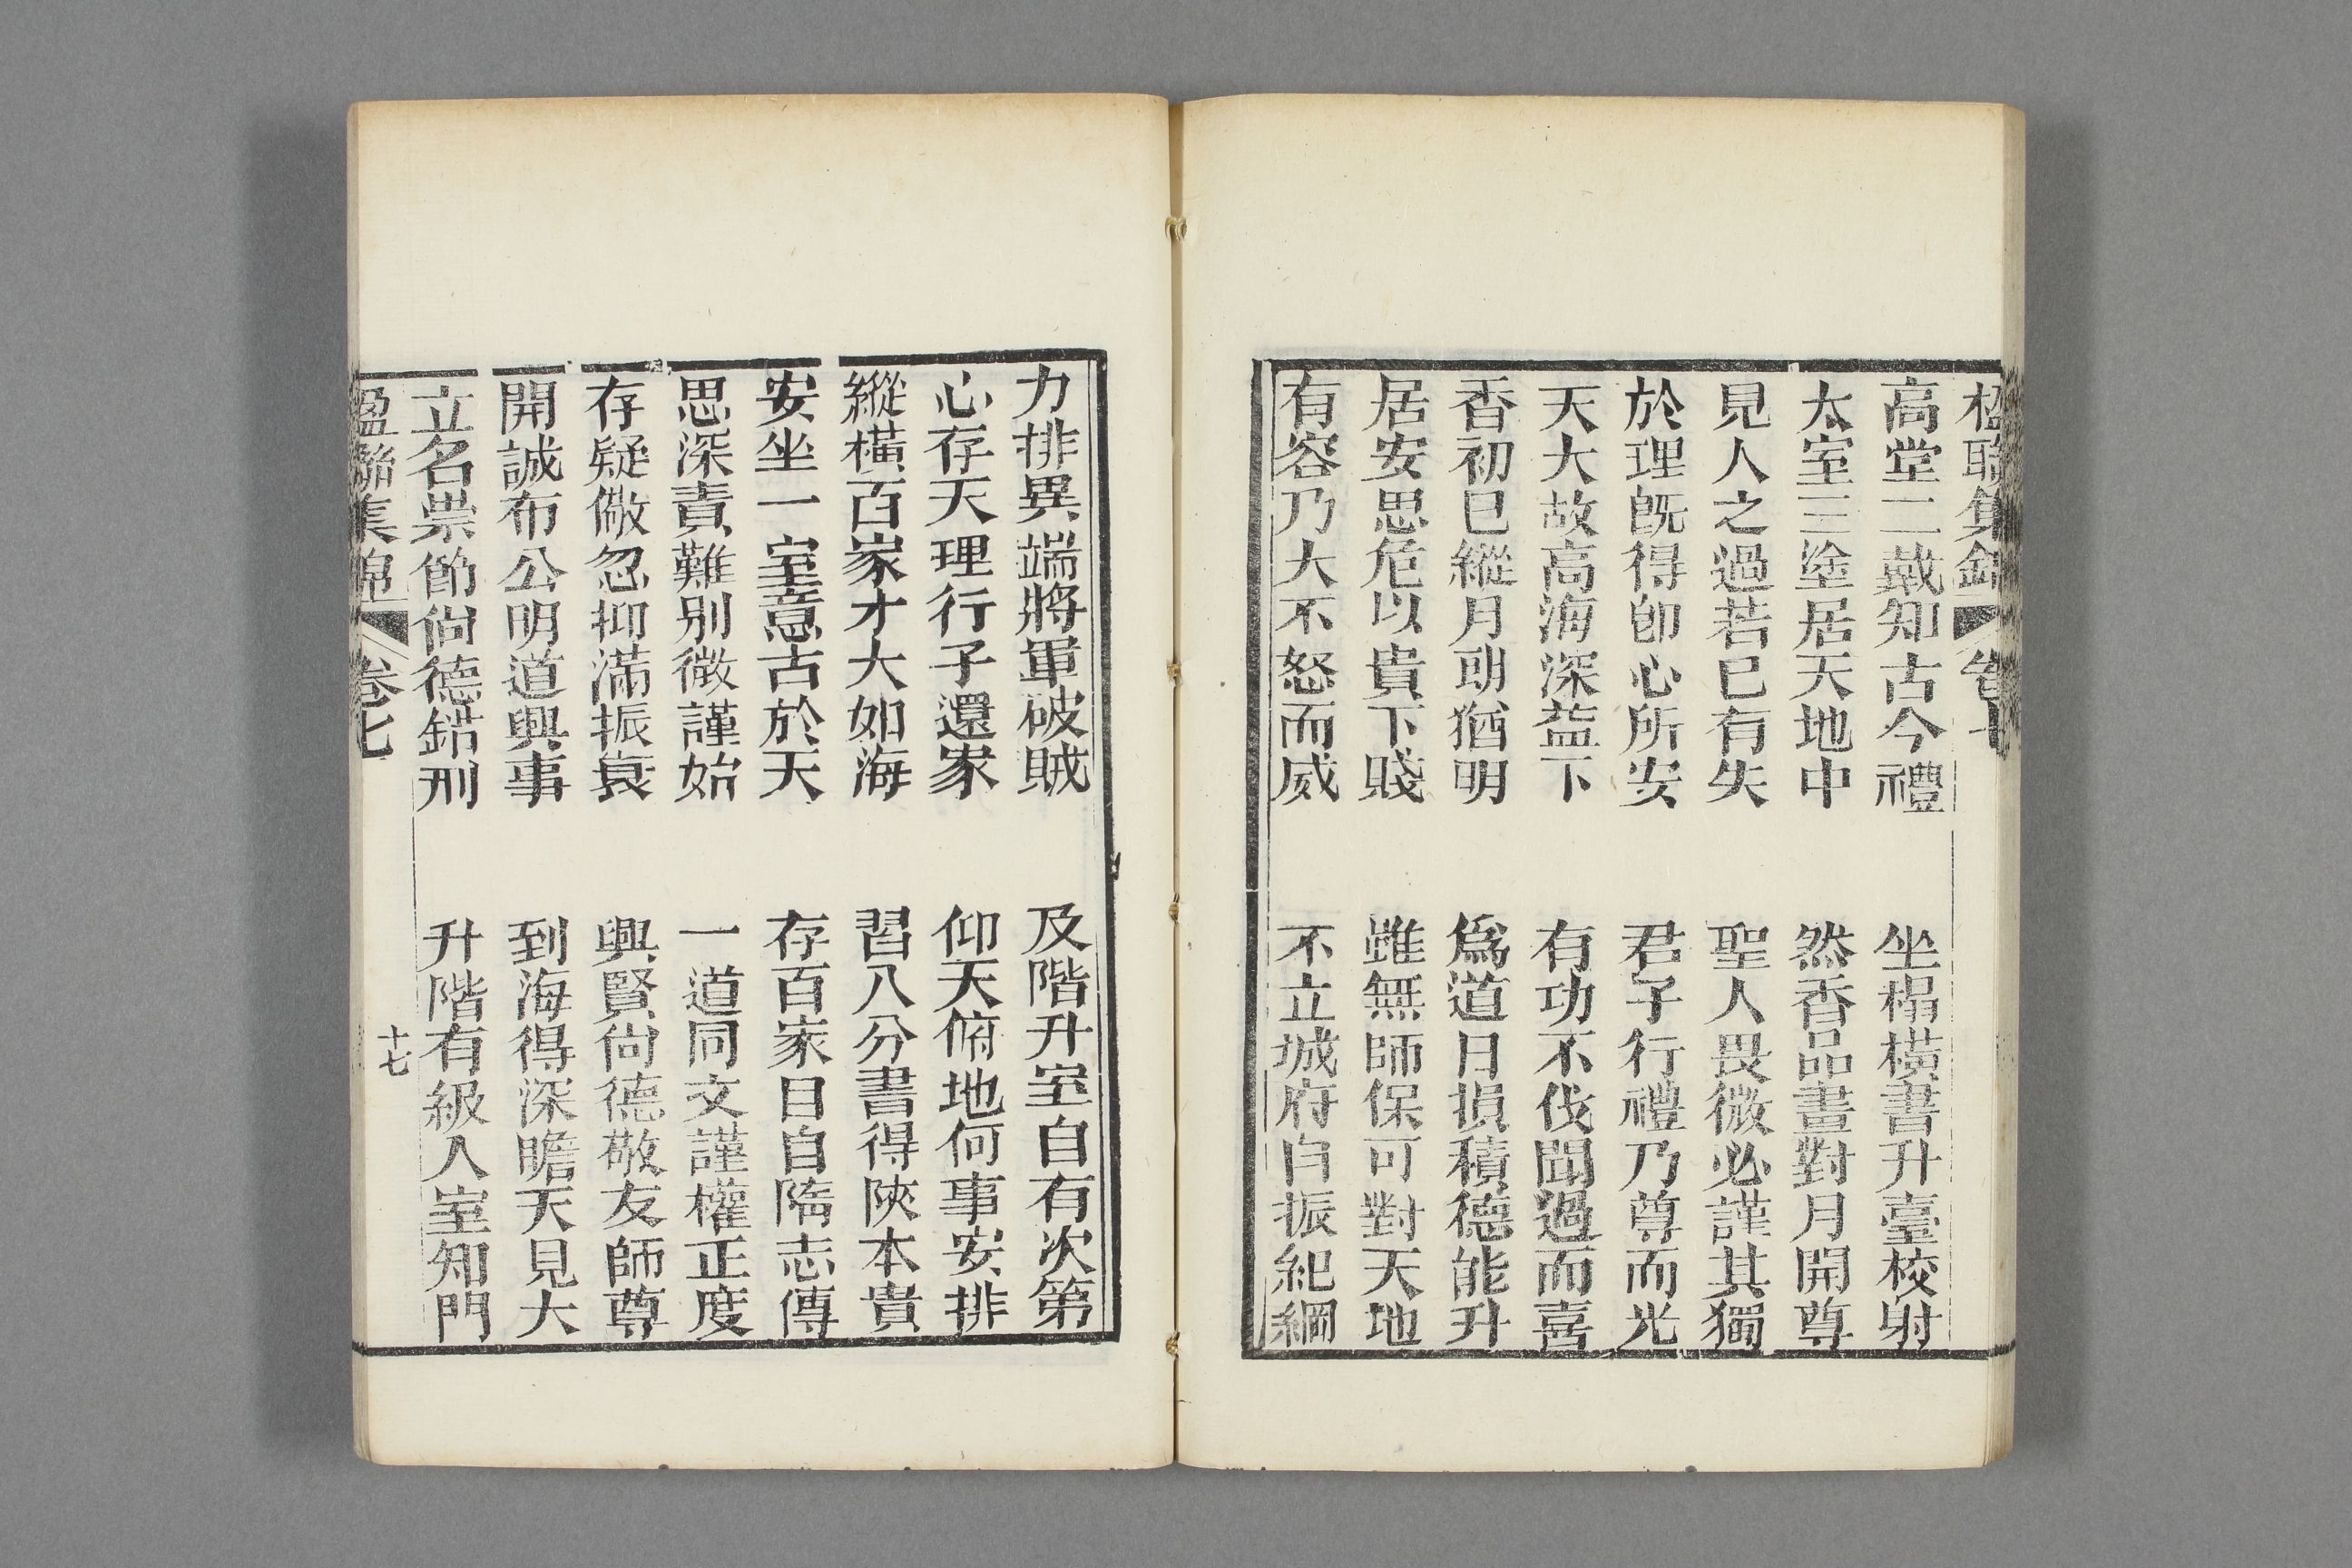 楹聯集錦 卷七
高堂二戴知古今禮 坐榻橫書升臺校射
太室三塗居天地中 然香品畫對月開尊
見人之過若己有失 聖人畏微必謹其獨
於理既得即心所安 君子行禮乃尊而光
天大故高海深益下 有功不伐聞過而喜
香初巳縱月朗猶明 爲道日損積德能升
居安思危以貴下賤 雖無師保可對天地
有容乃大不怒而威 不立城府自振紀綱
力排異端將軍破賊 及階升室自有次第
心存天理行子還家 仰天俯地何事安排
縱橫百家才大如海 習八分書得陝本貴
安坐一室意古於天 存百家目自隋志傳
思深責難別微謹始 一道同文謹權正度
存疑儆忽抑滿振衰 興賢尙德敬友師尊
開誠布公明道興事 到海得深瞻天見大
立名崇節尙德錯刑 升階有級入室知門
楹聯集錦 卷七 十七